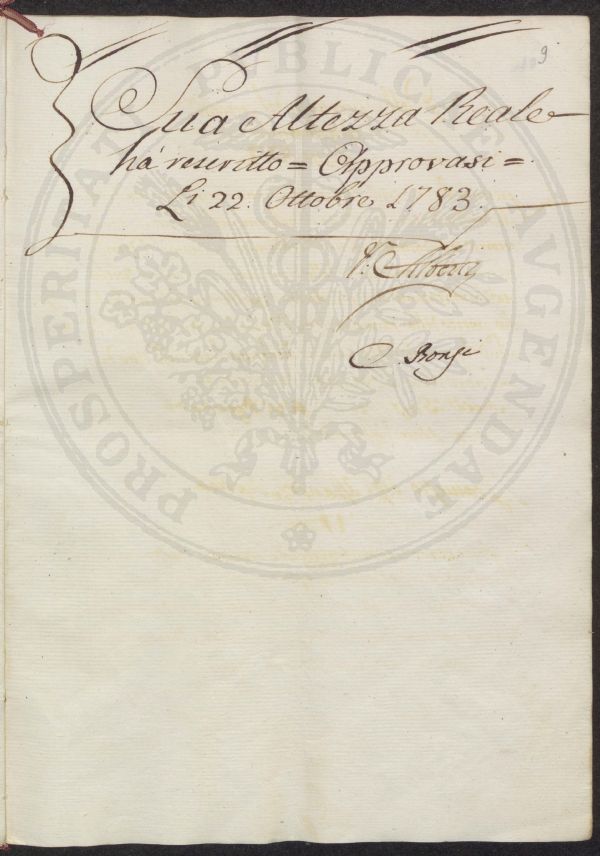 9
Sua Altezza Reale
há rescritto = Approvasi =
Li 22. Ottobre 1783.
V. Alberti
C. Bonsi
PROSPERITATI PUBLICAE AVGENDAE